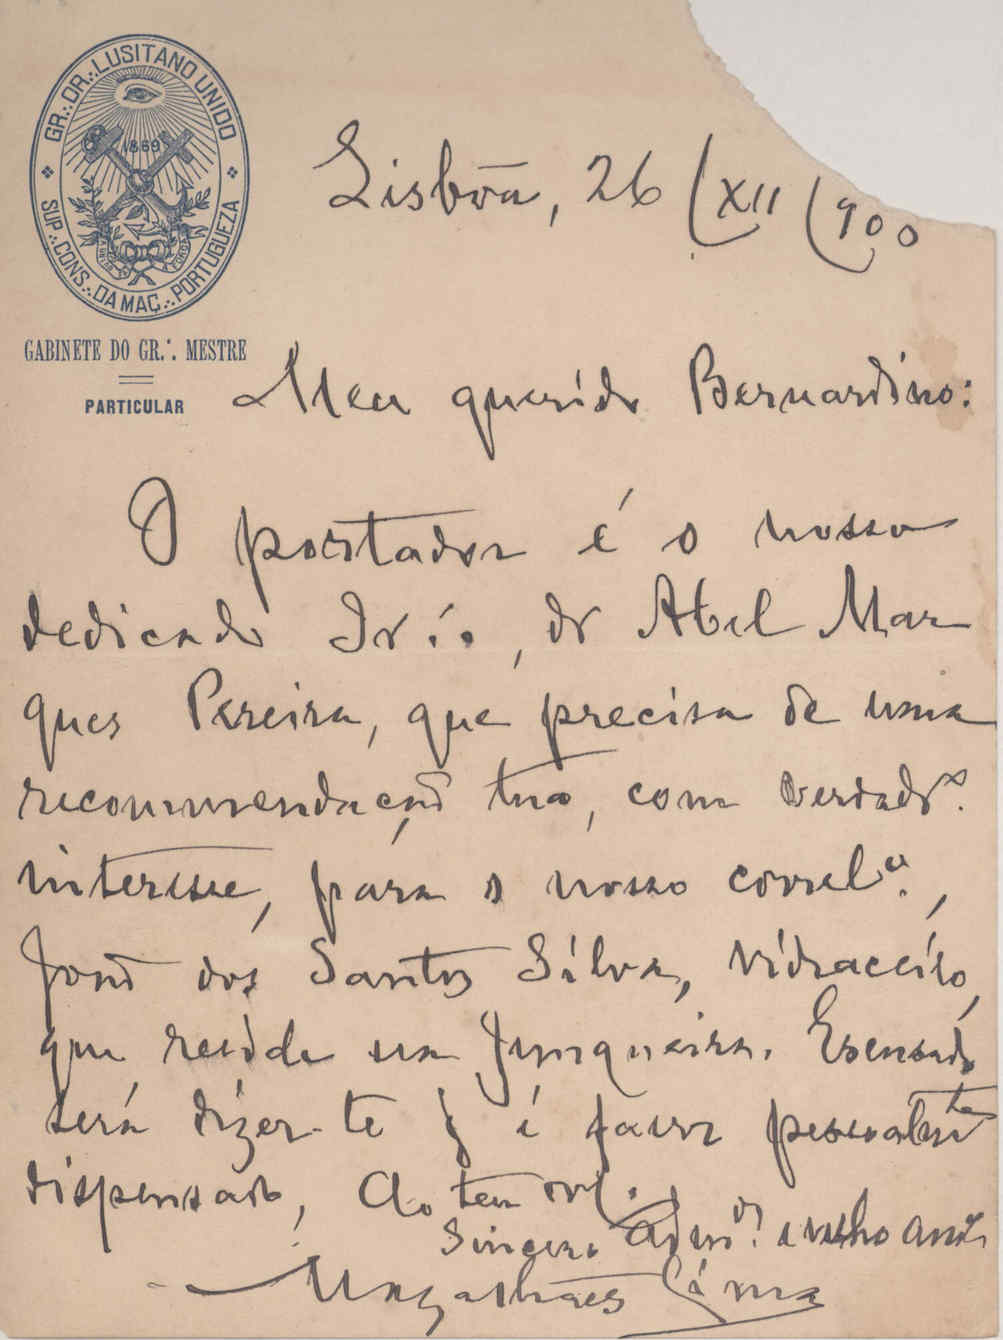 GR∴ OR∴ LUSITANO UNIDO
1869
SUP∴ CONS∴ DA MAÇ∴ PORTUGUEZA
GABINETE DO GR∴ MESTRE
PARTICULAR
Lisbôa, 26/XII/900
Meu querido Bernardino:
O portador é o nosso
dedicado Ir∴, dr Abel Mar
ques Pereira, que precisa de uma
recommendação tua, com verdadrº.
interesse, para o nosso correlº.,
José dos Santos Silva, vidraceiro,
que reside na Junqueira. Escusado
será dizer-te q é favor pessoalmte
dispensado, Ao teu
sincero admor. e velho amº
Magalhães Lima